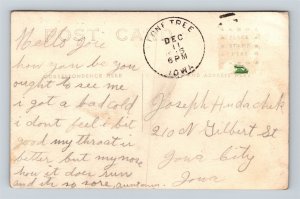 POST CARD
LONE TREE
DEC
11
6PM
IOWA
PLACE
STAMP
HERE
CORRESPONDENCE HERE
Hello Joe
how you be you
ought to see me
i got a bad cold
i dont feel i bit
good my throat is
better but my nose
how it does run
and its so sore,
Joseph Hudachek
210 N Gilbert St
Iowa City
Iowa